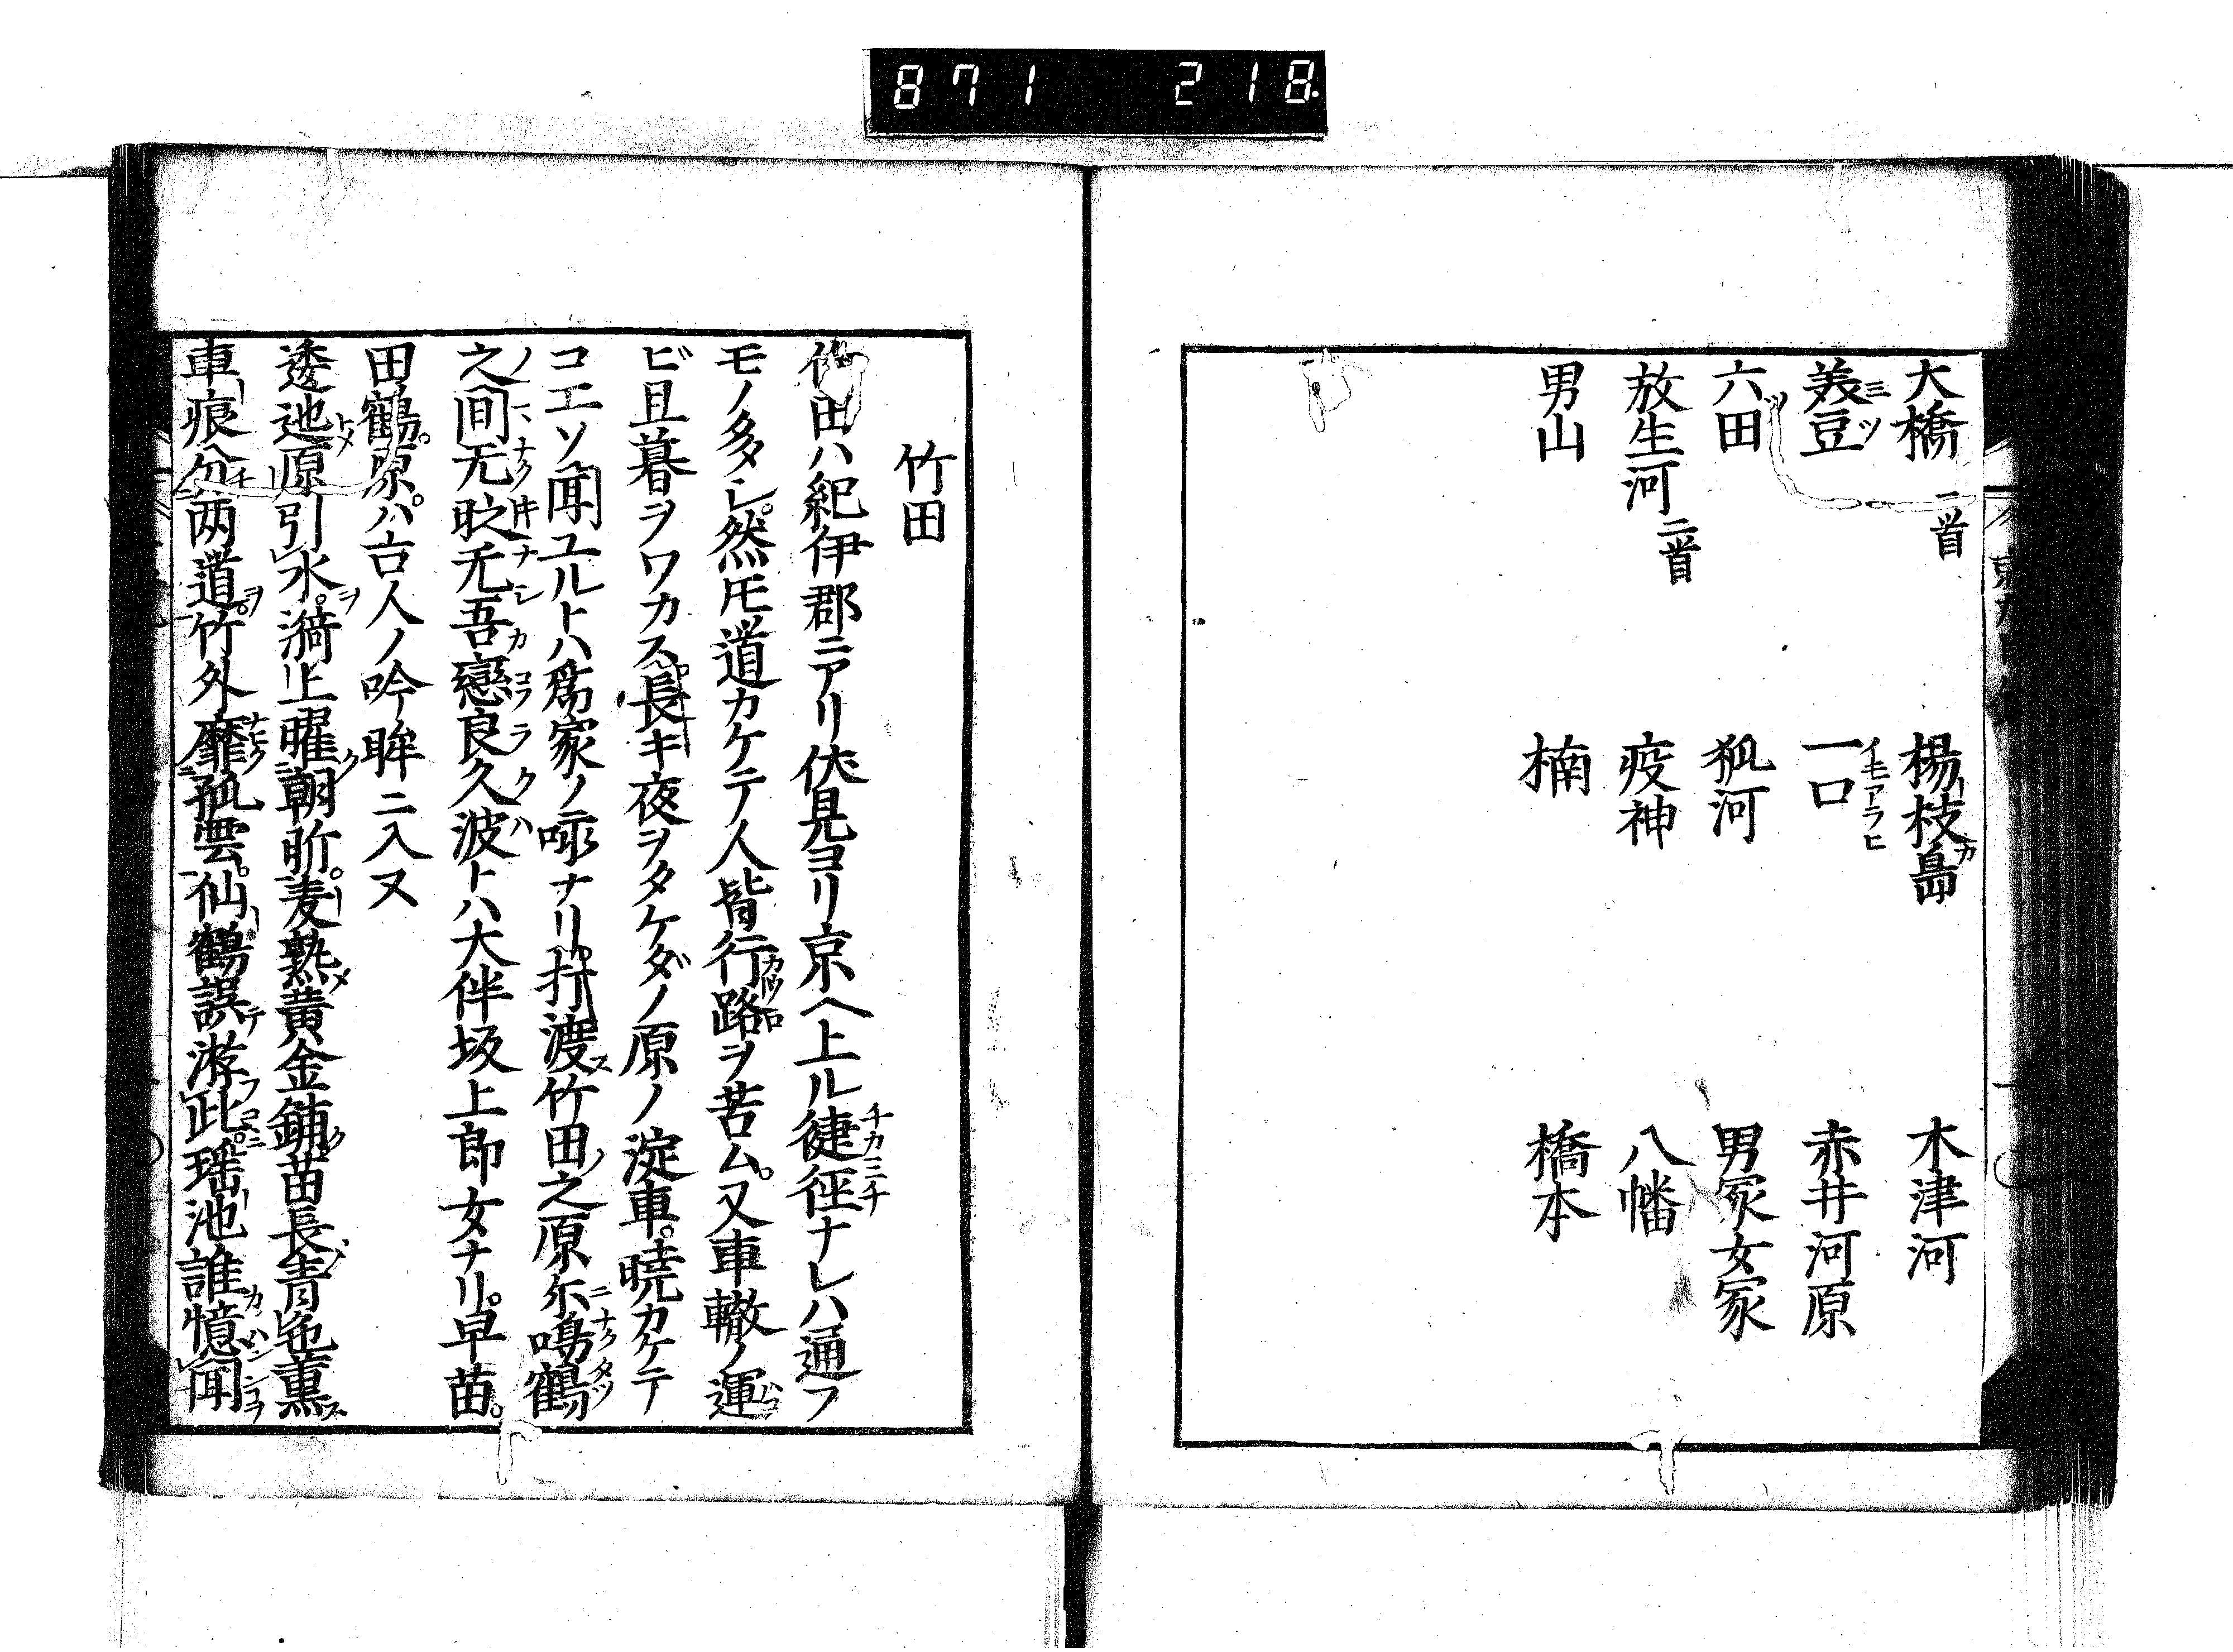 871 218
大橋 二首 楊枝島 木津河
美豆 一口 赤井河原
六田 狐河 男冢女冢
放生河 二首 疫神 八幡
男山 楠 橋本
竹田
竹田ハ紀伊郡ニアリ伏見ヨリ京ヘ上ル徤徑ナレハ通フ
モノ多シ然𪜈道カケテ人皆行路ヲ苦ム又車轍ノ運
ビ旦暮ヲワカス長キ夜ヲタケダノ原ノ淀車暁カケテ
コエソ聞ユルトハ爲家ノ咏ナリ打渡竹田之原尓鳴鶴
之間无时无吾戀良久波トハ大伴坂上郎女ナリ早苗
田鶴原ハ古人ノ吟眸ニ入ヌ
逶迤原引水漪上曜朝昕麦熟黄金鋪苗長青色薫
車痕分两道竹外靡孤雲仙鶴誤游此瑶池誰憶聞